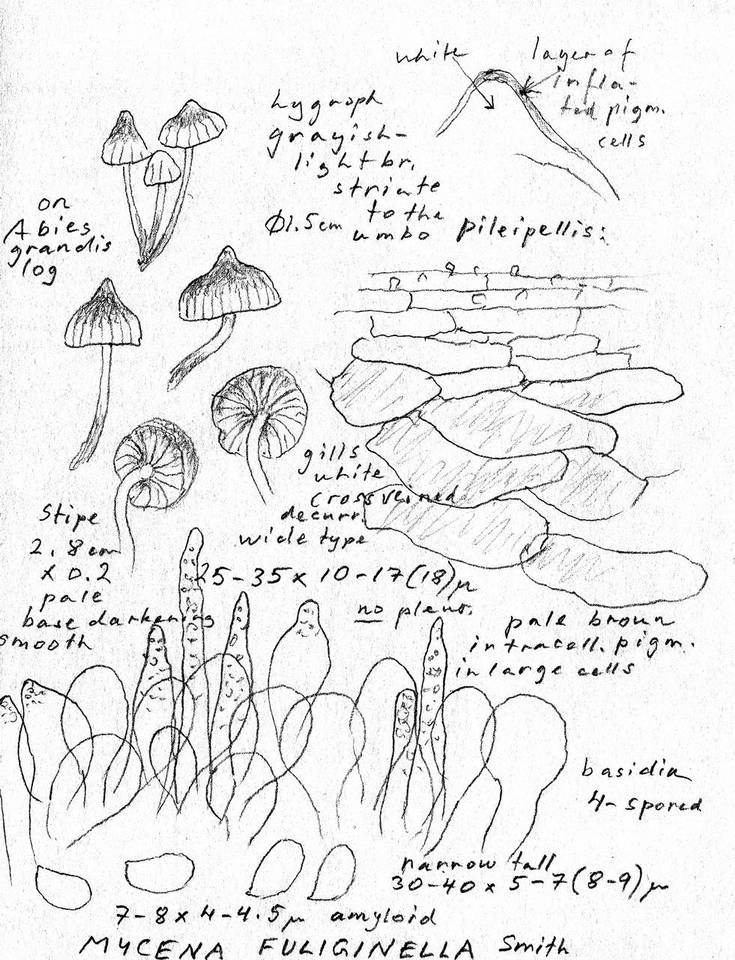 white
layer of
infla-
ted pigm.
cells
hygroph
grayish-
light br.
striate
to the
umbo
Ø1.5cm
pileipellis:
on
Abies
grandis
log
gills
white
crossveined
decurr.
wide type
Stipe
2.8cm
x 0.2
pale
base darkening
smooth
25-35x10-17(18)µ
no pleur.
pale brown
intracell. pigm.
in large cells
basidia
4-spored
narrow tall
30-40 x 5-7(8-9)µ
7-8x4-4.5µ amyloid
MYCENA FULIGINELLA Smith